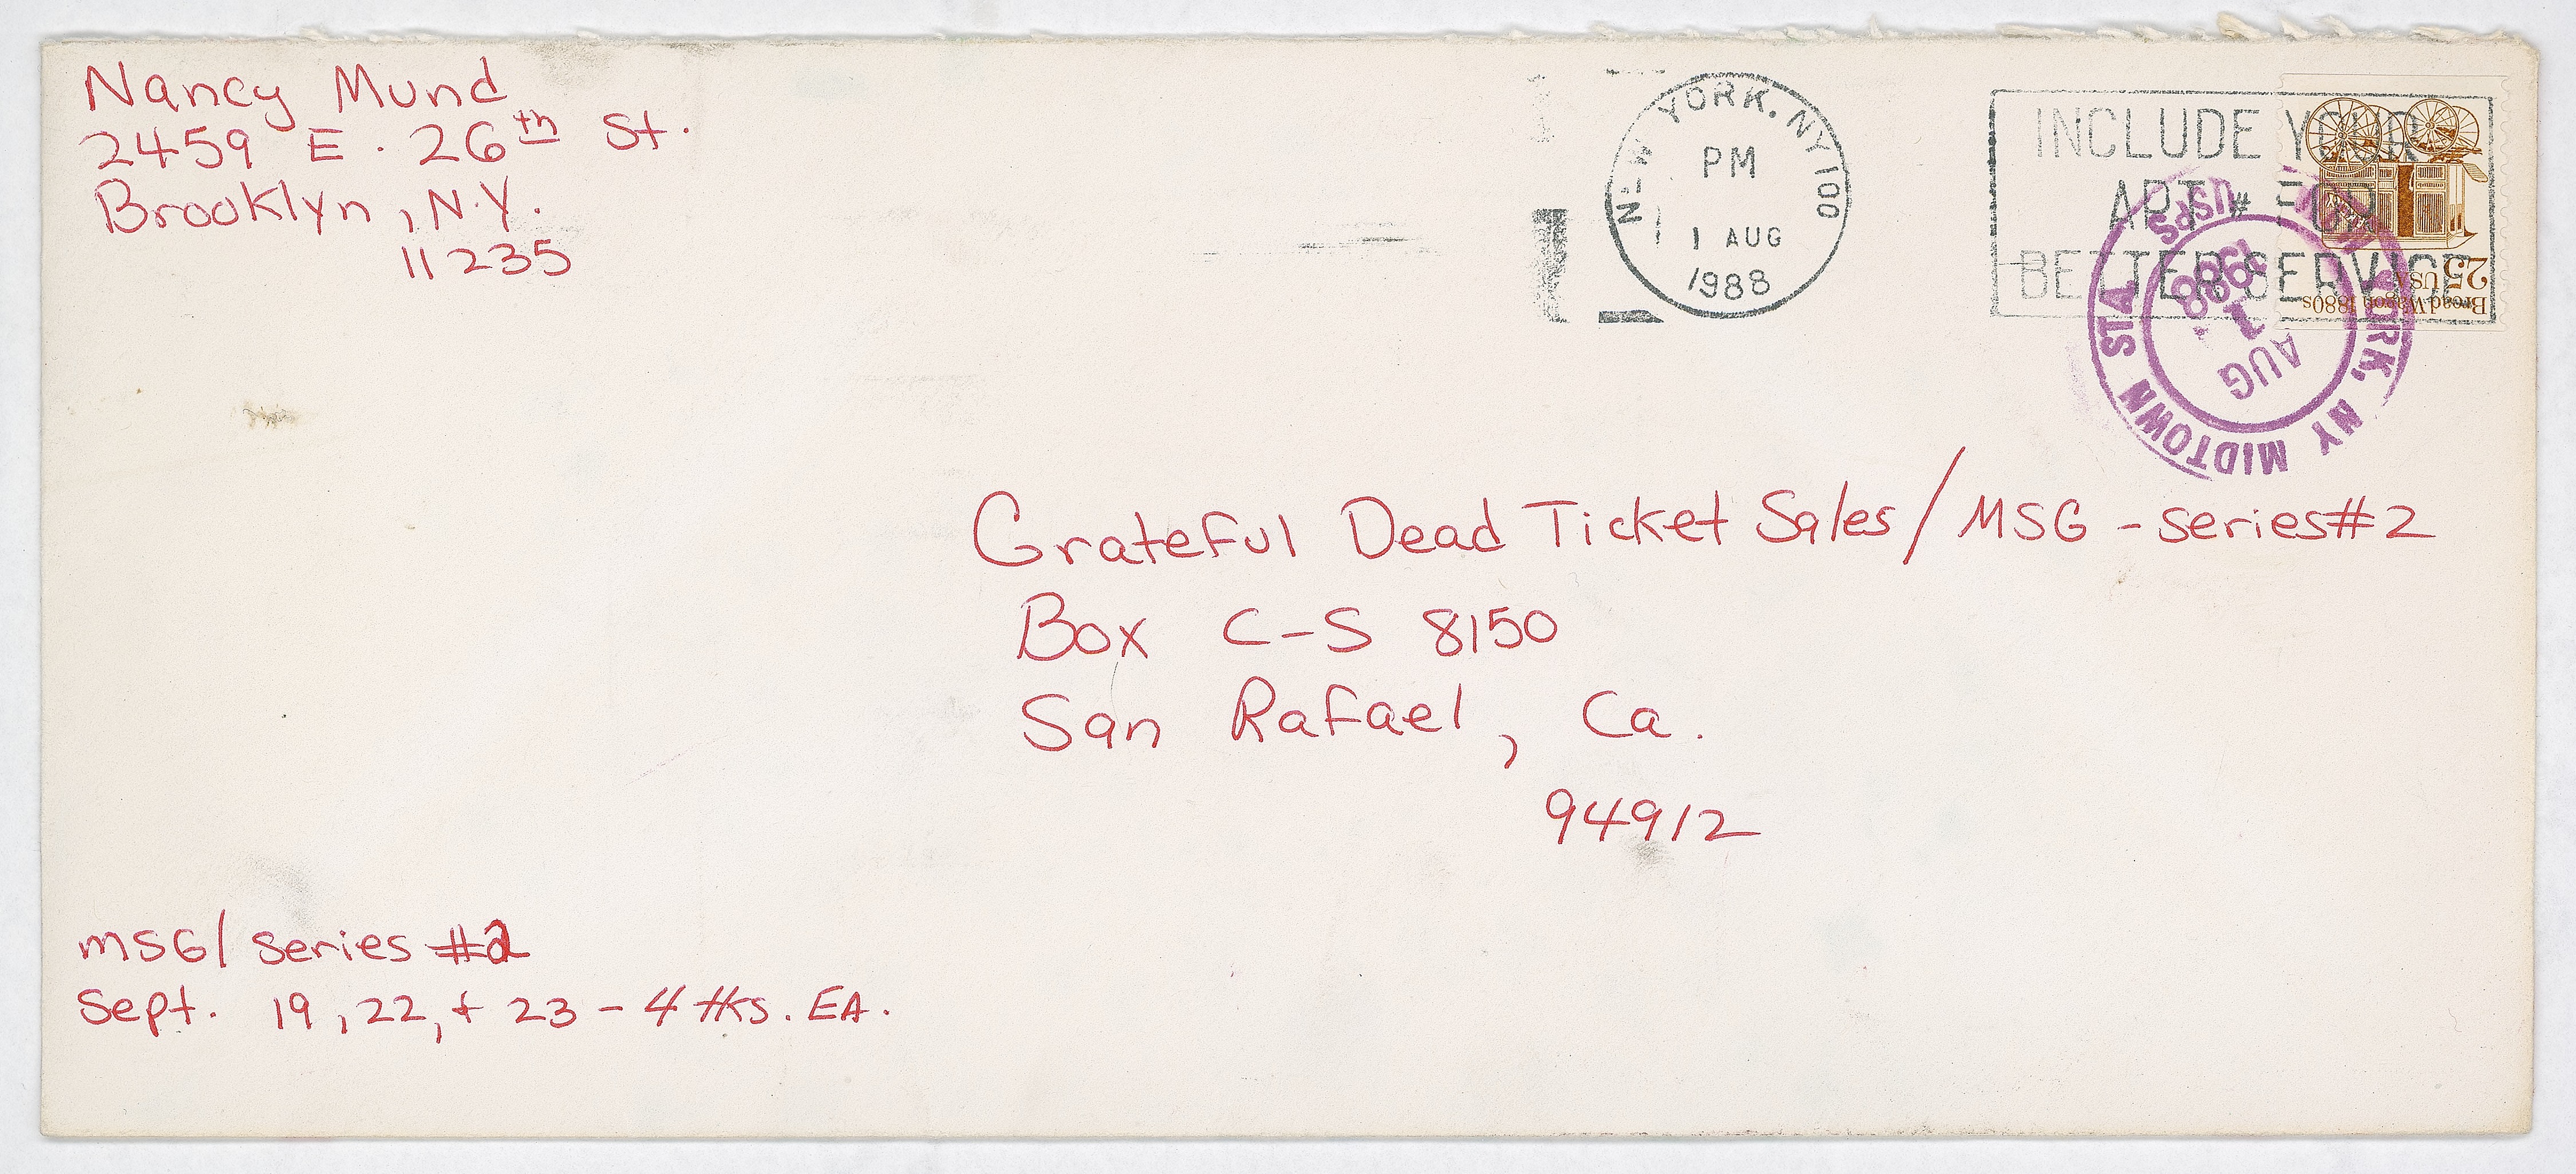 Nancy Mund
2459 E. 26th St.
Brooklyn, N.Y.
11235
NEW YORK, NY 100
PM
1 AUG
1988
INCLUDE YOUR
APT # FOR
BETTER SERVICE
Bread Wagon 1880s
25 USA
NEW YORK, NY MIDTOWN STA
USPS
AUG
1
1988
Grateful Dead Ticket Sales/MSG - series#2
Box C-S 8150
San Rafael, Ca.
94912
MSG/ series #2
Sept. 19, 22, + 23 - 4 tks. EA.